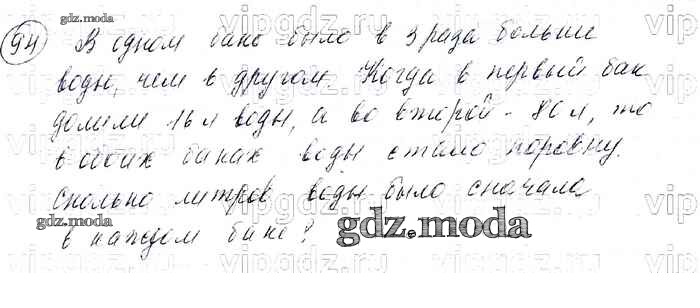 94 В одном баке было в 3 раза больше
воды, чем в другом. Когда в первый бак
долили 16 л воды, а во второй - 80 л, то
в обоих баках воды стало поровну.
Сколько литров воды было сначала
в каждом баке?
gdz.moda
gdz.moda
gdz.moda
gdz.moda
vipgdz.ru